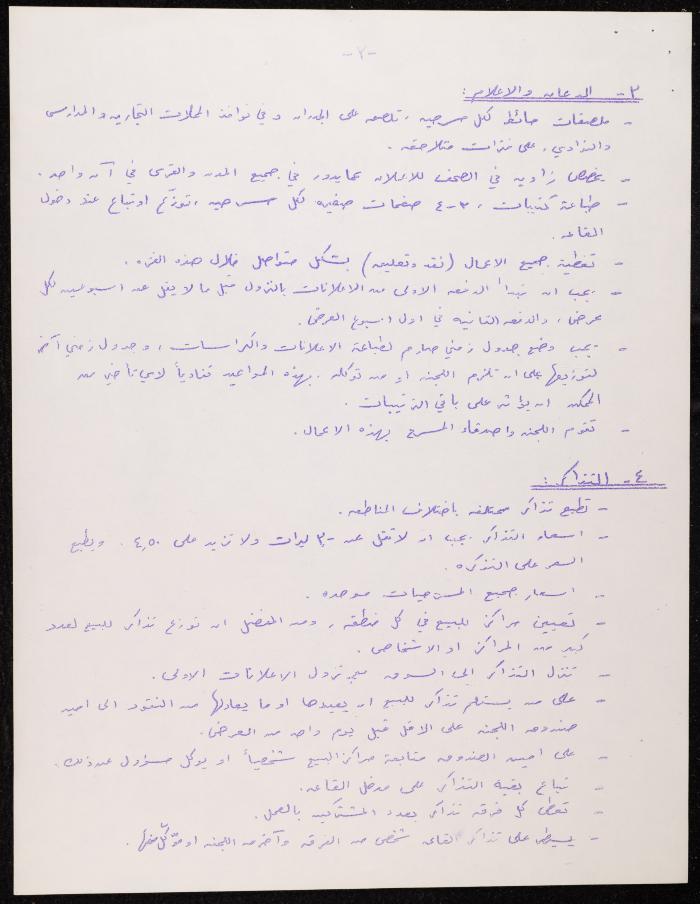 -٢-
٣- الدعاية والاعلام :
- ملصقات حائط لكل مسرحيه ، تلصق على الجدران وفي نوافذ المحلات التجاريه والمدارس
والنوادي ، على فترات متلاحقه .
- يخصص زاويه في الصحف للاعلان عما يدور في جميع المدن والقرى في آن واحد .
- طباعة كتيبات ، ٣-٤ صفحات صغيره لكل مسرحيه ، توزّع او تباع عند دخول
القاعه .
- تغطية جميع الاعمال (نقد وتعليق) بشكل متواصل خلال هذه الفتره .
- يجب ان تبدأ الدفعه الاولى من الاعلانات بالنزول قبل ما لا يقل عن اسبوعين لكل
عرض ، والدفعه الثانيه في اول اسبوع العرض .
- يجب وضع جدول زمني صارم لطباعة الاعلانات والكراسات ، وجدول زمني آخر
لتوزيعها على ان تلتزم اللجنه او من توكله بهذه المواعيد تفادياً لاي تأخير من
الممكن ان يؤثر على باقي الترتيبات .
- تقوم اللجنه واصدقاء المسرح بهذه الاعمال .
٤- التذاكر :
- تطبع تذاكر مختلفه باختلاف المناطق .
- اسعار التذاكر يجب ان لا تقل عن ٣٫٠ ليرات ولا تزيد على ٤٫٥٠ . ويطبع
السعر على التذكره .
- اسعار جميع المسرحيات موحده .
- تعيين مراكز للبيع في كل منطقه ، ومن المفضل ان توزع تذاكر للبيع لعدد
كبير من المراكز او الاشخاص .
- تنزل التذاكر الى السوق مع نزول الاعلانات الاولى .
- على من يستلم تذاكر للبيع ان يعيدها او ما يعادلها من النقود الى امين
صندوق اللجنه على الاقل قبل يوم واحد من العرض .
- على امين الصندوق متابعة مراكز البيع شخصياً او يوكل مسؤول عن ذلك .
- تباع بقية التذاكر على مدخل القاعه .
- تعطى كل فرقه تذاكر بعدد المشتركين بالعمل .
- يسيطر على تذاكر القاعه شخص من الفرقه وآخر من اللجنه او موكّل منها .